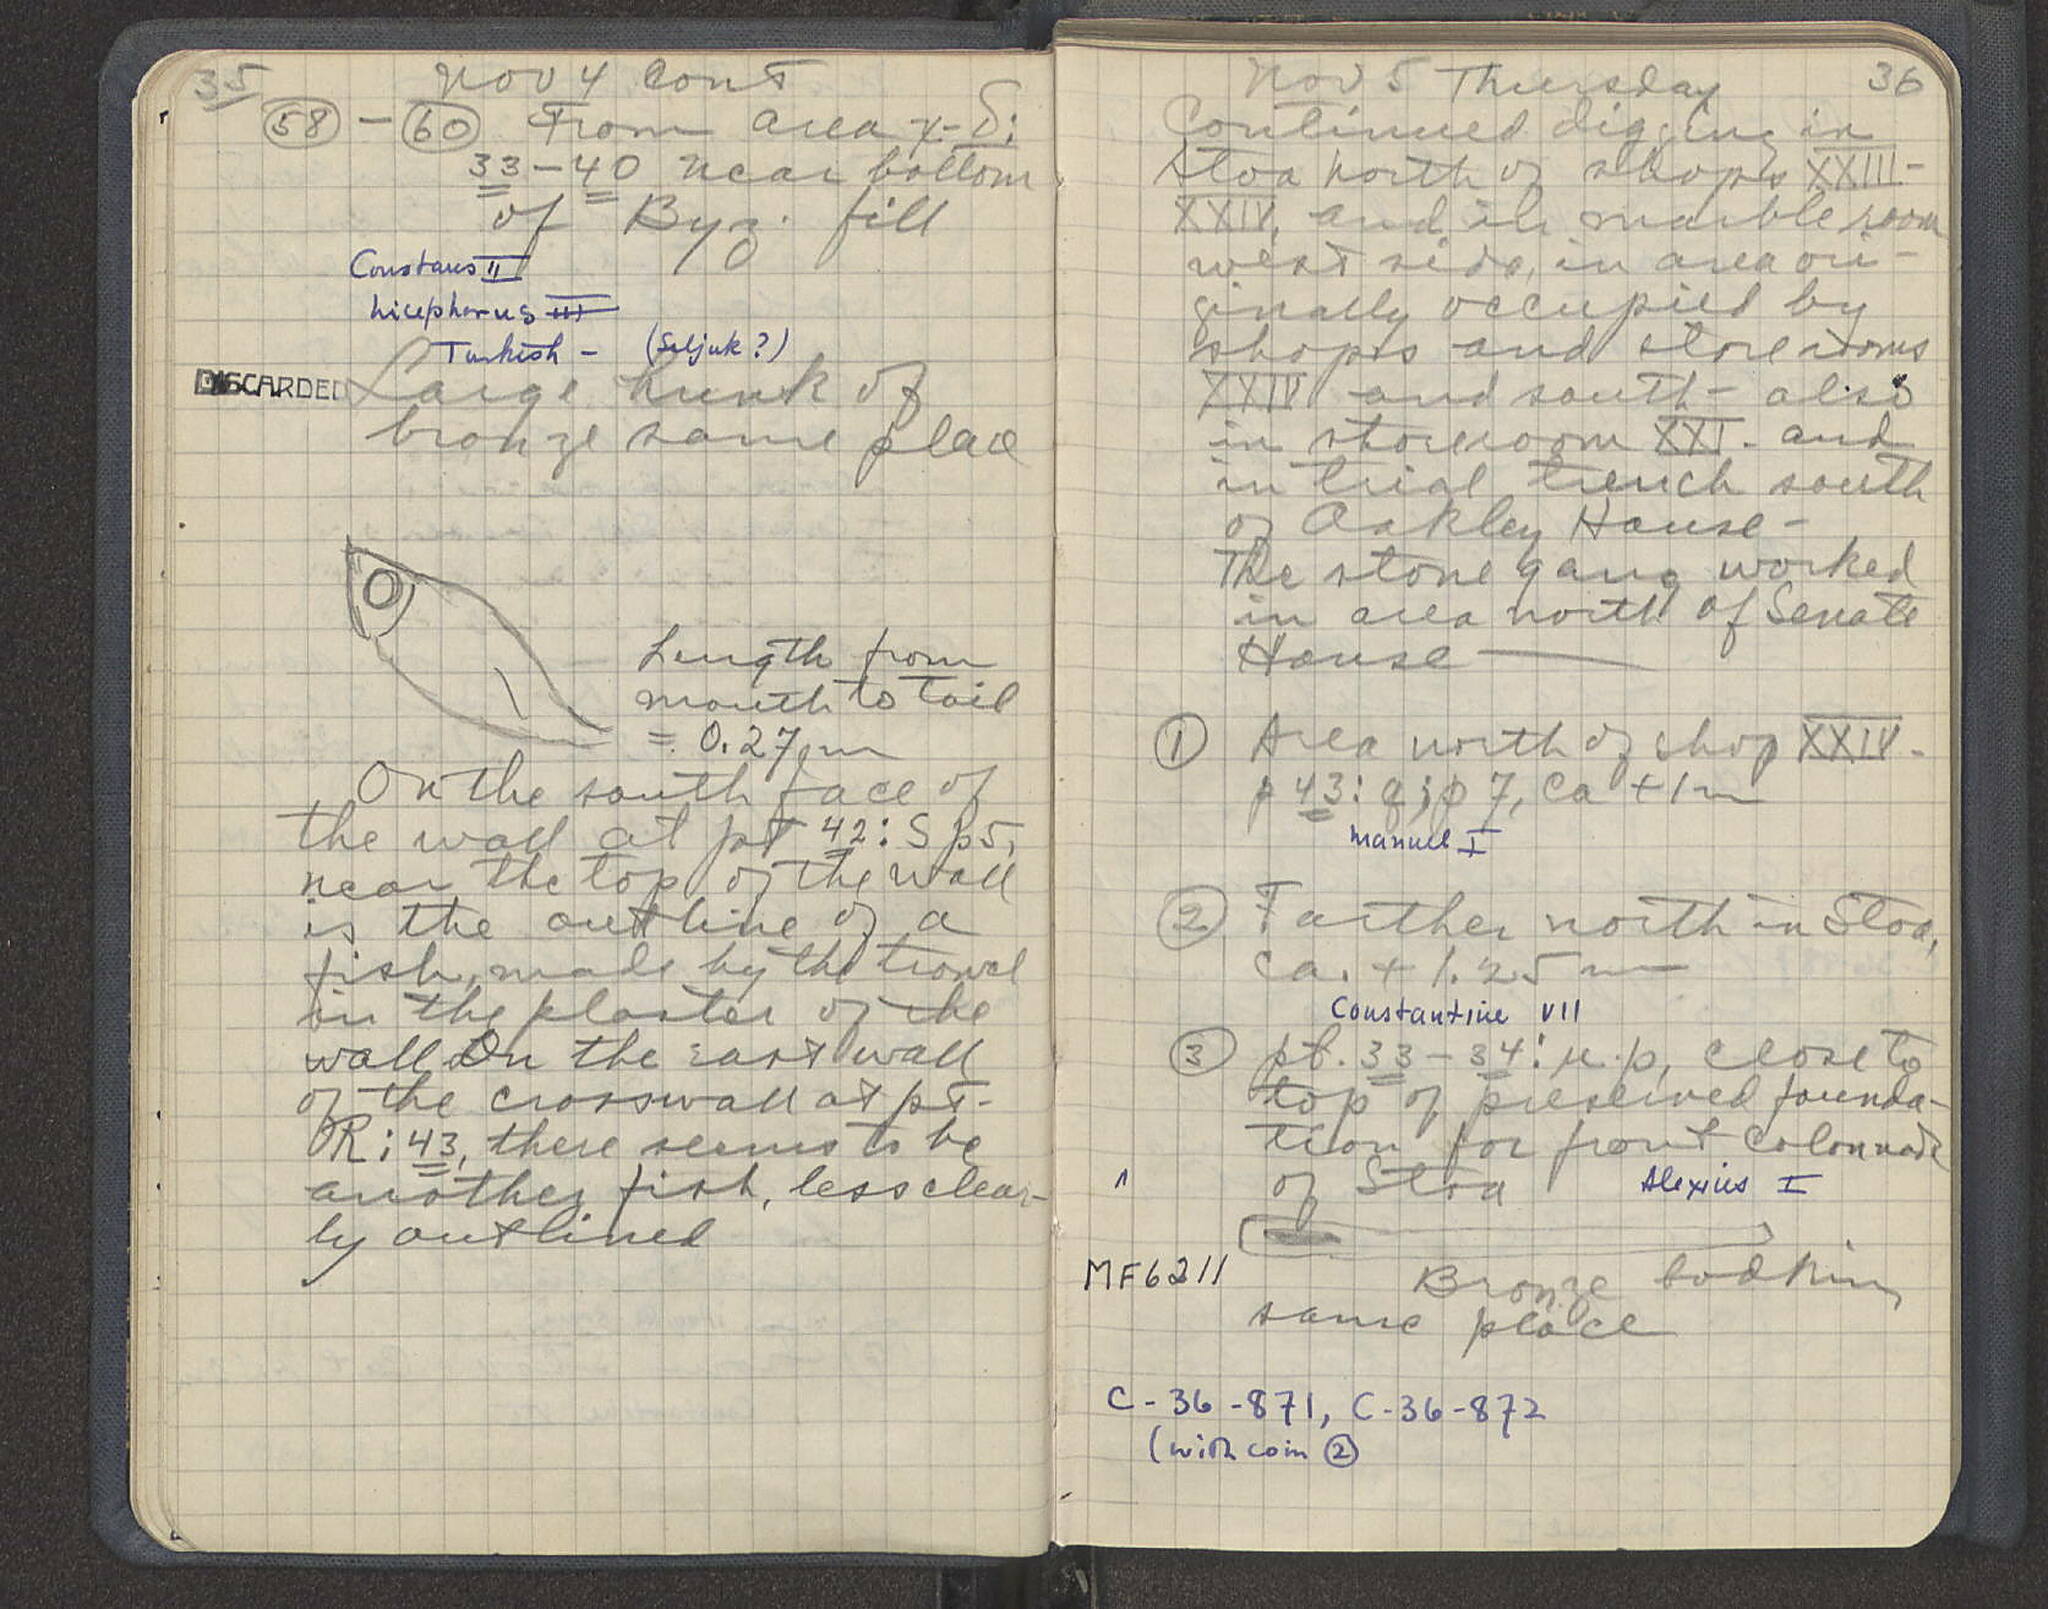 35
Nov 4 Cont
58 - 60 From area γ-δ:
33-40 near bottom
of Byz. fill
Constans II
Nicephorus III
Turkish - (Seljuk?)
DISCARDED
Large hunk of
bronze same place
Length from
mouth to tail
= 0.27 m
On the south face of
the wall at pt 42: S p5,
near the top of the wall
is the outline of a
fish, made by the trowel
in the plaster of the
wall On the east wall
of the crosswall at pt-
R: 43, there seems to be
another fish, less clear-
ly outlined
Nov 5 Thursday
36
Continued digging in
Stoa north of shops XXIII-
XXIV, and in marble room
west side, in area ori-
ginally occupied by
shops and storerooms
XXIV and south - also
in storeroom XXI. and
in trial trench south
of Oakley House -
The stone gang worked
in area north of Senate
House
1 Area north of shop XXIV-
p 43: q; p 7, ca + 1 m
Manuel I
2 Farther north in Stoa,
ca. + 1.25 m
Constantine VII
3 pt. 33-34: μ.p, close to
top of preserved founda-
tion for front colonnade
of Stoa
Alexius I
MF6211
Bronze bodkin,
same place
C-36-871, C-36-872
(with coin 2